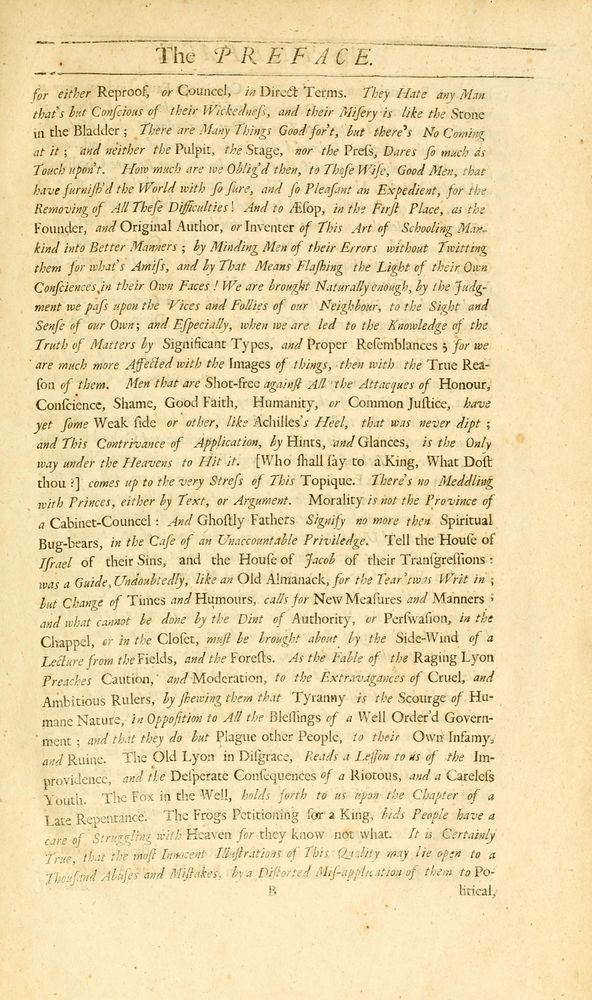 The PREFACE.
for either Reproof, or Councel, in Direct Terms. They Hate any Man
that's but Conſcious of their Wickedneſs, and their Miſery is like the Stone
in the Bladder; There are Many Things Good for't, but there's No Coming
at it; and neither the Pulpit, the Stage, nor the Preſs, Dares ſo much as
Touch upon't. How much are we Oblig'd then, to Thoſe Wiſe, Good Men, that
have furniſh'd the World with ſo ſure, and ſo Pleaſant an Expedient, for the
Removing of All Theſe Difficulties! And to Æſop, in the Firſt Place, as the
Founder, and Original Author, or Inventer of This Art of Schooling Man-
kind into Better Manners; by Minding Men of their Errors without Twitting
them for what's Amiſs, and by That Means Flaſhing the Light of their Own
Conſciences in their Own Faces! We are brought Naturally enough, by the Judg-
ment we paſs upon the Vices and Follies of our Neighbour, to the Sight and
Senſe of our Own; and Eſpecially, when we are led to the Knowledge of the
Truth of Matters by Significant Types, and Proper Reſemblances; for we
are much more Affected with the Images of things, then with the True Rea-
ſon of them. Men that are Shot-free againſt All the Attacques of Honour,
Conſcience, Shame, Good Faith, Humanity, or Common Juſtice, have
yet ſome Weak ſide or other, like Achilles's Heel, that was never dipt;
and This Contrivance of Application, by Hints, and Glances, is the Only
way under the Heavens to Hit it. [Who ſhall ſay to a King, What Doſt
thou?] comes up to the very Streſs of This Topique. There's no Meddling
with Princes, either by Text, or Argument. Morality is not the Province of
a Cabinet-Councel: And Ghoſtly Fathers Signify no more then Spiritual
Bug-bears, in the Caſe of an Unaccountable Priviledge. Tell the Houſe of
Iſrael of their Sins, and the Houſe of Jacob of their Tranſgreſſions:
was a Guide, Undoubtedly, like an Old Almanack, for the Year 'twas Writ in;
but Change of Times and Humours, calls for New Meaſures and Manners;
and what cannot be done by the Dint of Authority, or Perſwaſion, in the
Chappel, or in the Cloſet, muſt be brought about by the Side-Wind of a
Lecture from the Fields, and the Foreſts. As the Fable of the Raging Lyon
Preaches Caution, and Moderation, to the Extravagances of Cruel, and
Ambitious Rulers, by ſhewing them that Tyranny is the Scourge of Hu-
mane Nature, in Oppoſition to All the Bleſſings of a Well Order'd Govern-
ment; and that they do but Plague other People, to their Own Infamy,
and Ruine. The Old Lyon in Diſgrace, Reads a Leſſon to us of the Im-
providence, and the Deſperate Conſequences of a Riotous, and a Careleſs
Youth. The Fox in the Well, holds forth to us upon the Chapter of a
Late Repentance. The Frogs Petitioning for a King, bids People have a
care of Struggling with Heaven for they know not what. It is Certainly
True, that the moſt Innocent Illuſtrations of This Quality may lie open to a
Thouſand Abuſes and Miſtakes, by a Diſtorted Miſ-application of them to Po-
B litical,